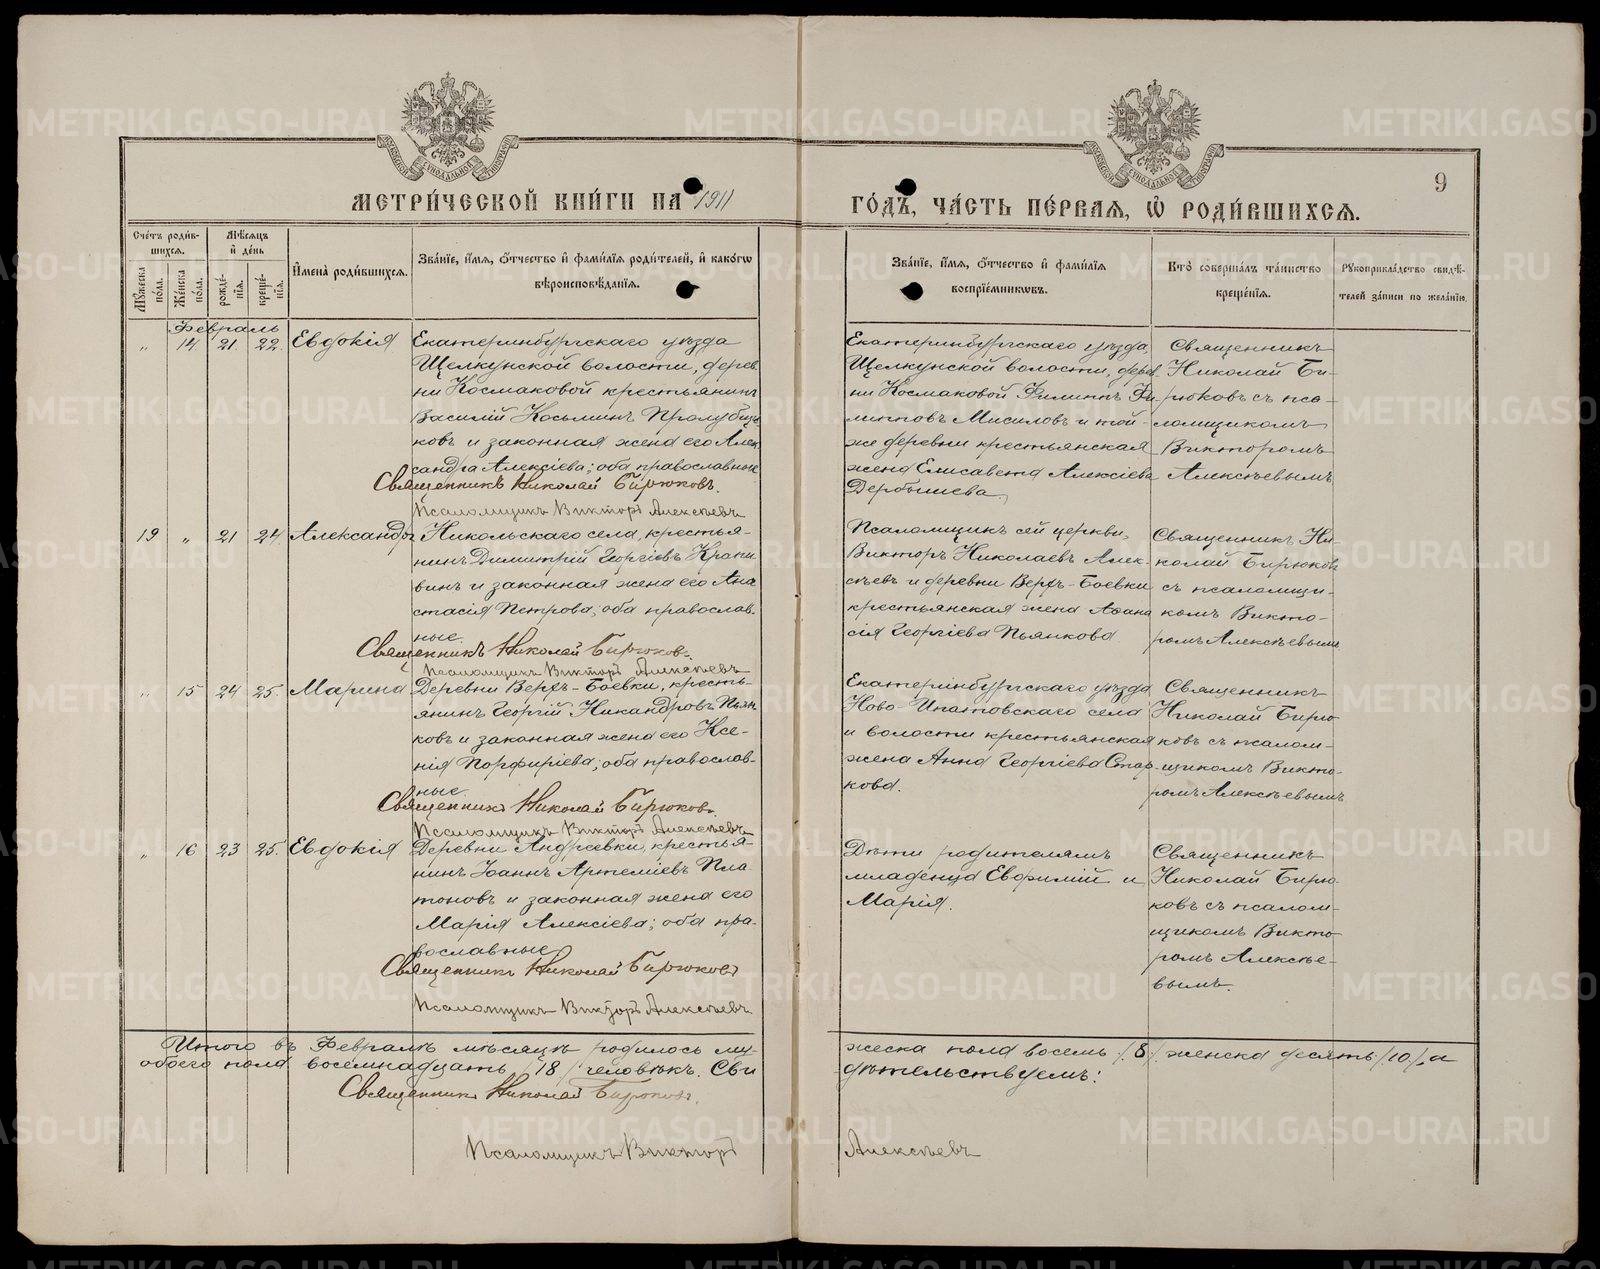 МЕТРИ́ЧЕСКОЙ КНИ́ГИ НА 1911
ГО́ДЪ, ЧА́СТЬ ПЕ́РВАЯ, Ѡ РОДИ́ВШИХСЯ.
9
Сче́тъ роди́в-
шихся.
Мѣ́сяцъ
и҆ де́нь
Му́жеска по́ла.
Же́нска по́ла.
рожде́-
нїѧ.
креще́-
нїѧ.
И҆мена̀ роди́вшихсѧ.
Зва́нїе, и҆́мѧ, ѻ҆́тчество и҆ фами́лїѧ роди́телей, и҆ како́гѡ
вѣроисповѣ́данїѧ.
Зва́нїе, и҆́мѧ, ѻ҆́тчество и҆ фами́лїѧ
воспрїе́мникѡвъ.
Кто̀ соверша́лъ та́инство
креще́нїѧ.
Рꙋкоприкла́дство свидѣ́-
телей за́писи по жела́нїю.
Февраль
" 14 21. 22. Евдокія
Екатеринбургскаго уѣзда
Щелкунской волости, дерев
ни Космаковой крестьянинъ
Василій Косьминъ
ковъ и законная жена его Алек
сандра Алексіева; оба православные
Священникъ Николай Бирюковъ.
Псаломщикъ Викторъ Алексѣевъ
Екатеринбургскаго уѣзда,
Щелкунской волости, дерев
ни Космаковой Филиппъ Фи
липповъ Мисиловъ и той-
же деревни крестьянская
жена Елисавета Алексіева
Дербышева.
Священникъ
Николай Би-
рюковъ съ пса-
ломщикомъ
Викторомъ
Алексѣевымъ
19 " 21 24 Александръ
Никольскаго села, крестья-
нинъ Димитрій Георгіевъ Крапи
винъ и законная жена его Ана
стасія Петрова; оба православ-
ные.
Священникъ Николай Бирюковъ.
Псаломщикъ Викторъ Алексѣевъ
Псаломщикъ сей церкви,
Викторъ Николаевъ Алек-
сѣевъ и деревни Верхъ-Боевки
крестьянская жена Аѳана
сія Георгіева Пьянкова
Священникъ Ни-
колай Бирюковъ
съ псаломщи-
комъ Викто-
ромъ Алексѣевымъ
" 15 24 25. Марина
Деревни Верхъ-Боевки, кресть-
янинъ Георгій Никандровъ Пьян
ковъ и законная жена его Ксе-
нія Порфиріева; оба православ-
ные.
Священникъ Николай Бирюковъ.
Псаломщикъ Викторъ Алексѣевъ
Екатеринбургскаго уѣзда
Ново-Ипатовскаго села
и волости крестьянская
жена Анна Георгіева Стар-
кова.
Священникъ
Николай Бирю-
ковъ съ псалом-
щикомъ Викто-
ромъ Алексѣевымъ
" 16 23 25. Евдокія
Деревни Андреевки, крестья-
нинъ Іоаннъ Артеміевъ Пла-
тоновъ и законная жена его
Марія Алексіева; оба пра-
вославные
Священникъ Николай Бирюковъ
Псаломщикъ Викторъ Алексѣевъ.
Дѣти родителямъ
младенца Евфимій и
Марія.
Священникъ
Николай Бирю-
ковъ съ псалом-
щикомъ Викто-
ромъ Алексѣе-
вымъ.
Итого въ Февралѣ мѣсяцѣ родилось му-
жеска пола восемь /8/, женска десять /10/, а
обоего пола восемнадцать /18/ человѣкъ. Сви
дѣтельствуемъ:
Священникъ Николай Бирюковъ.
Псаломщикъ Викторъ Алексѣевъ
METRIKI.GASO-URAL.RU